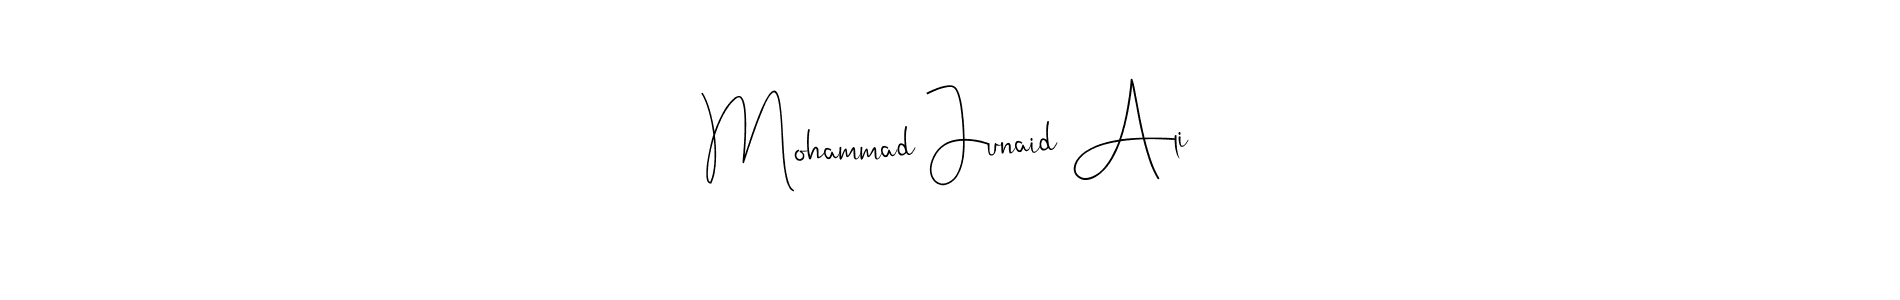 Mohammad Junaid Ali